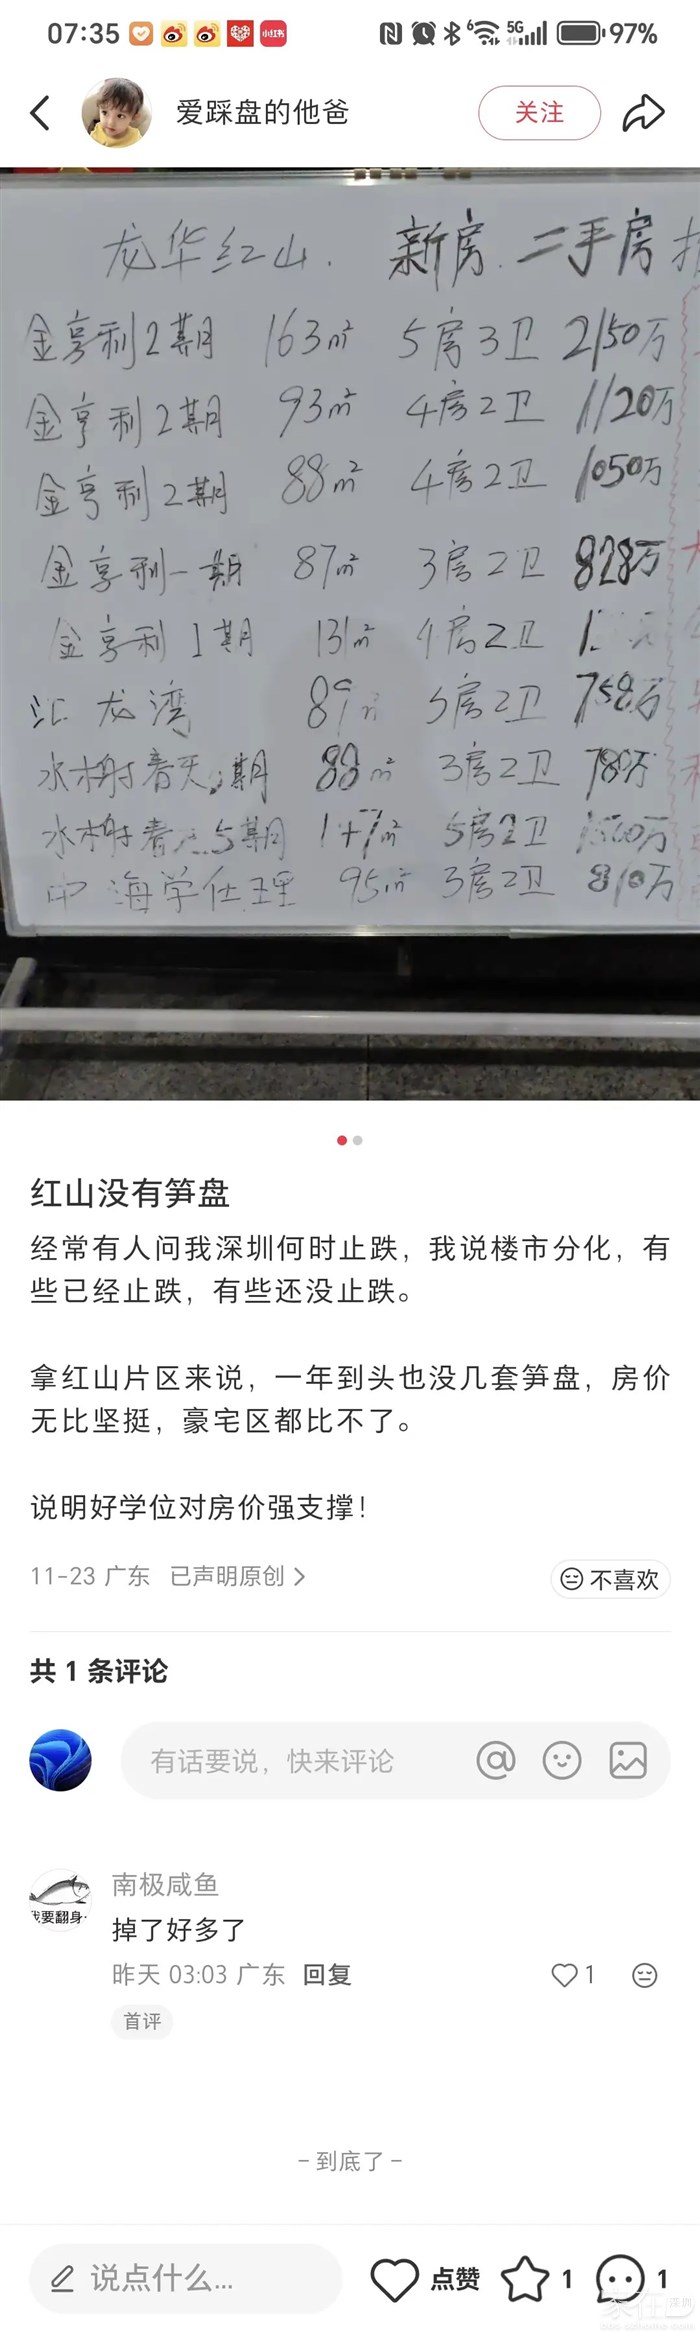 07:35
小红书
6
5G
97%
爱踩盘的他爸
关注
龙华红山. 新房. 二手房
金亨利2期 163m² 5房3卫 2150万
金亨利2期 93m² 4房2卫 1120万
金亨利2期 88m² 4房2卫 1050万
金亨利一期 87m² 3房2卫 828万
金亨利1期 131m² 4房2卫
汇龙湾 89m² 房2卫 758万
水榭春天 期 88m² 3房2卫 780万
水榭春 5期 147m² 5房2卫
中海学仕里 95m² 3房2卫 810万
红山没有笋盘
经常有人问我深圳何时止跌，我说楼市分化，有
些已经止跌，有些还没止跌。
拿红山片区来说，一年到头也没几套笋盘，房价
无比坚挺，豪宅区都比不了。
说明好学位对房价强支撑！
11-23 广东 已声明原创
不喜欢
共 1 条评论
有话要说，快来评论
我要翻身
南极咸鱼
掉了好多了
昨天 03:03 广东 回复
1
首评
- 到底了 -
说点什么...
点赞
1
1
家在深圳